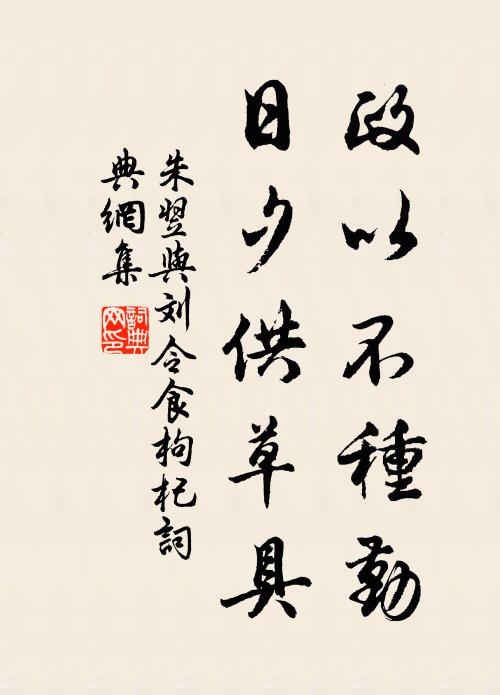 政以不種勤
日夕供草具
朱翌與刘令食枸杞詞
典網集
詞典网印